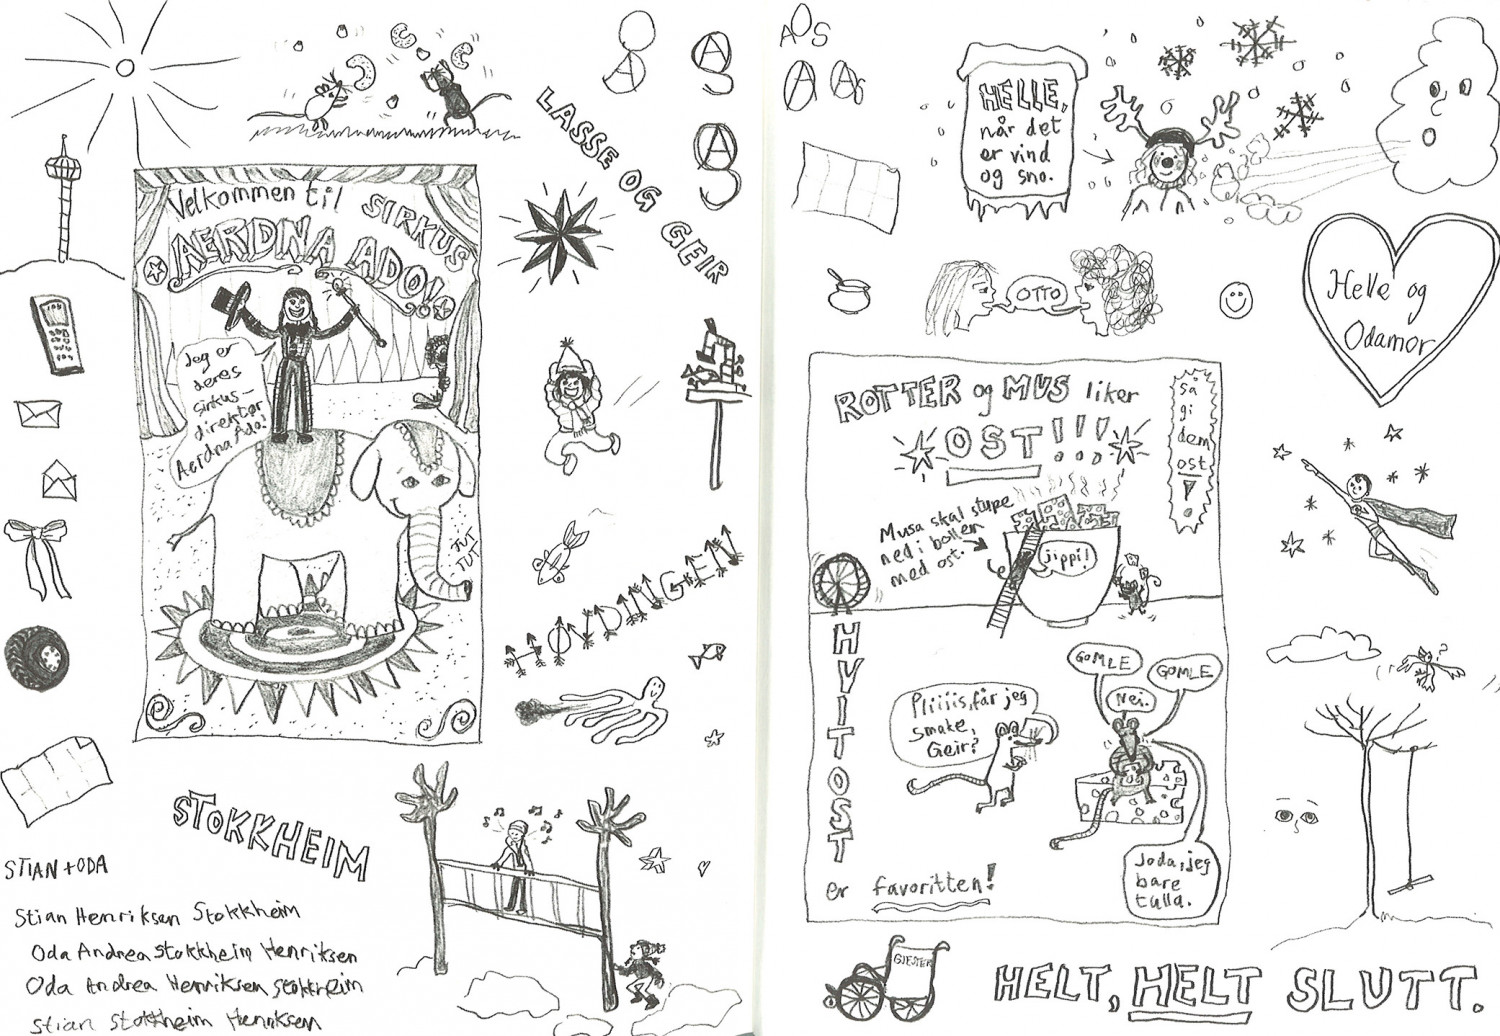 LASSE OG GEIR
Velkommen til SIRKUS
AERDNA ADO!
Jeg er
deres
sirkus-
direktør
Aerdna Ado!
TUT
TUT
HØVDINGEN
STOKKHEIM
STIAN + ODA
Stian Henriksen Stokkheim
Oda Andrea Stokkheim Henriksen
Oda Andrea Henriksen Stokkheim
Stian Stokkheim Henriksen
AOS
HELLE,
når det
er vind
og snø.
OTTO
Helle og
Odamor
ROTTER og MUS liker
OST!!!
Så
gi
dem
ost
!
Musa skal stupe
ned i bollen
med ost.
Jippi!
HVITOST
er favoritten!
Pliiiis, får jeg
smake,
Geir?
GOMLE
GOMLE
Nei.
Joda, jeg
bare
tulla.
R
?
GJESTER
HELT, HELT SLUTT.